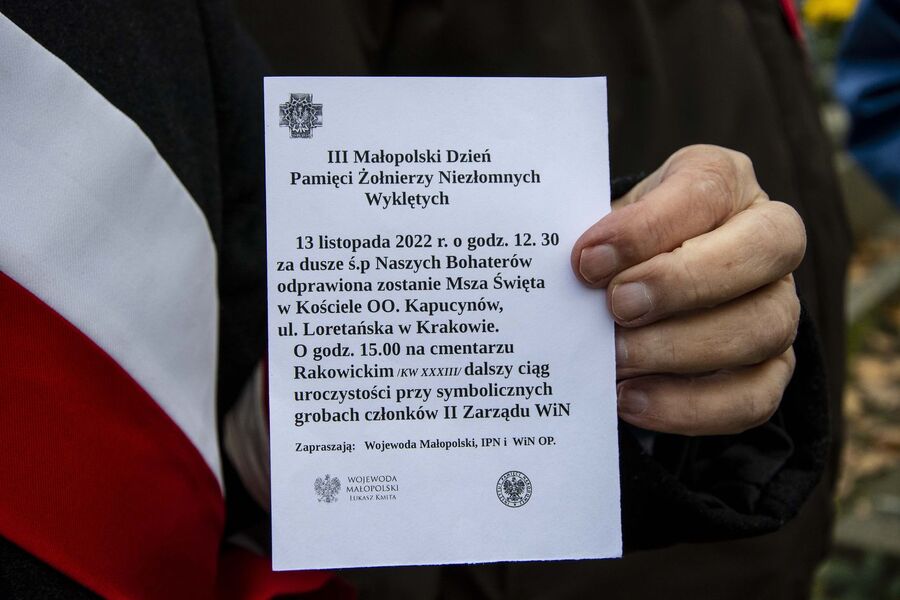 III Małopolski Dzień
Pamięci Żołnierzy Niezłomnych
Wyklętych
13 listopada 2022 r. o godz. 12. 30
za dusze ś.p Naszych Bohaterów
odprawiona zostanie Msza Święta
w Kościele OO. Kapucynów,
ul. Loretańska w Krakowie.
O godz. 15.00 na cmentarzu
Rakowickim /KW XXXIII/ dalszy ciąg
uroczystości przy symbolicznych
grobach członków II Zarządu WiN
Zapraszają: Wojewoda Małopolski, IPN i WiN OP.
WOJEWODA
MAŁOPOLSKI
ŁUKASZ KMITA